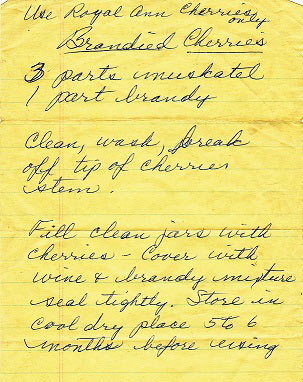 Use Royal Ann Cherries only
Brandied Cherries
3 parts muskatel
1 part brandy
Clean, wash, break
off tip of cherries
stem.
Fill clean jars with
cherries - Cover with
wine & brandy mixture
seal tightly. Store in
cool dry place 5 to 6
months before using